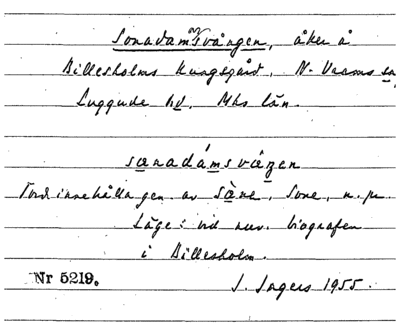 Sonadamsvången, åker å
Billesholms Kungsgård, N. Vrams sn,
Luggude hd. Mhs län.
sœnadámsvâŋen
Tord. innehålla gen. av Sòne, Sone, n. p.
Läge: vid nuv. biografen
i Billesholm.
Nr 5219. J. Sagers 1955.